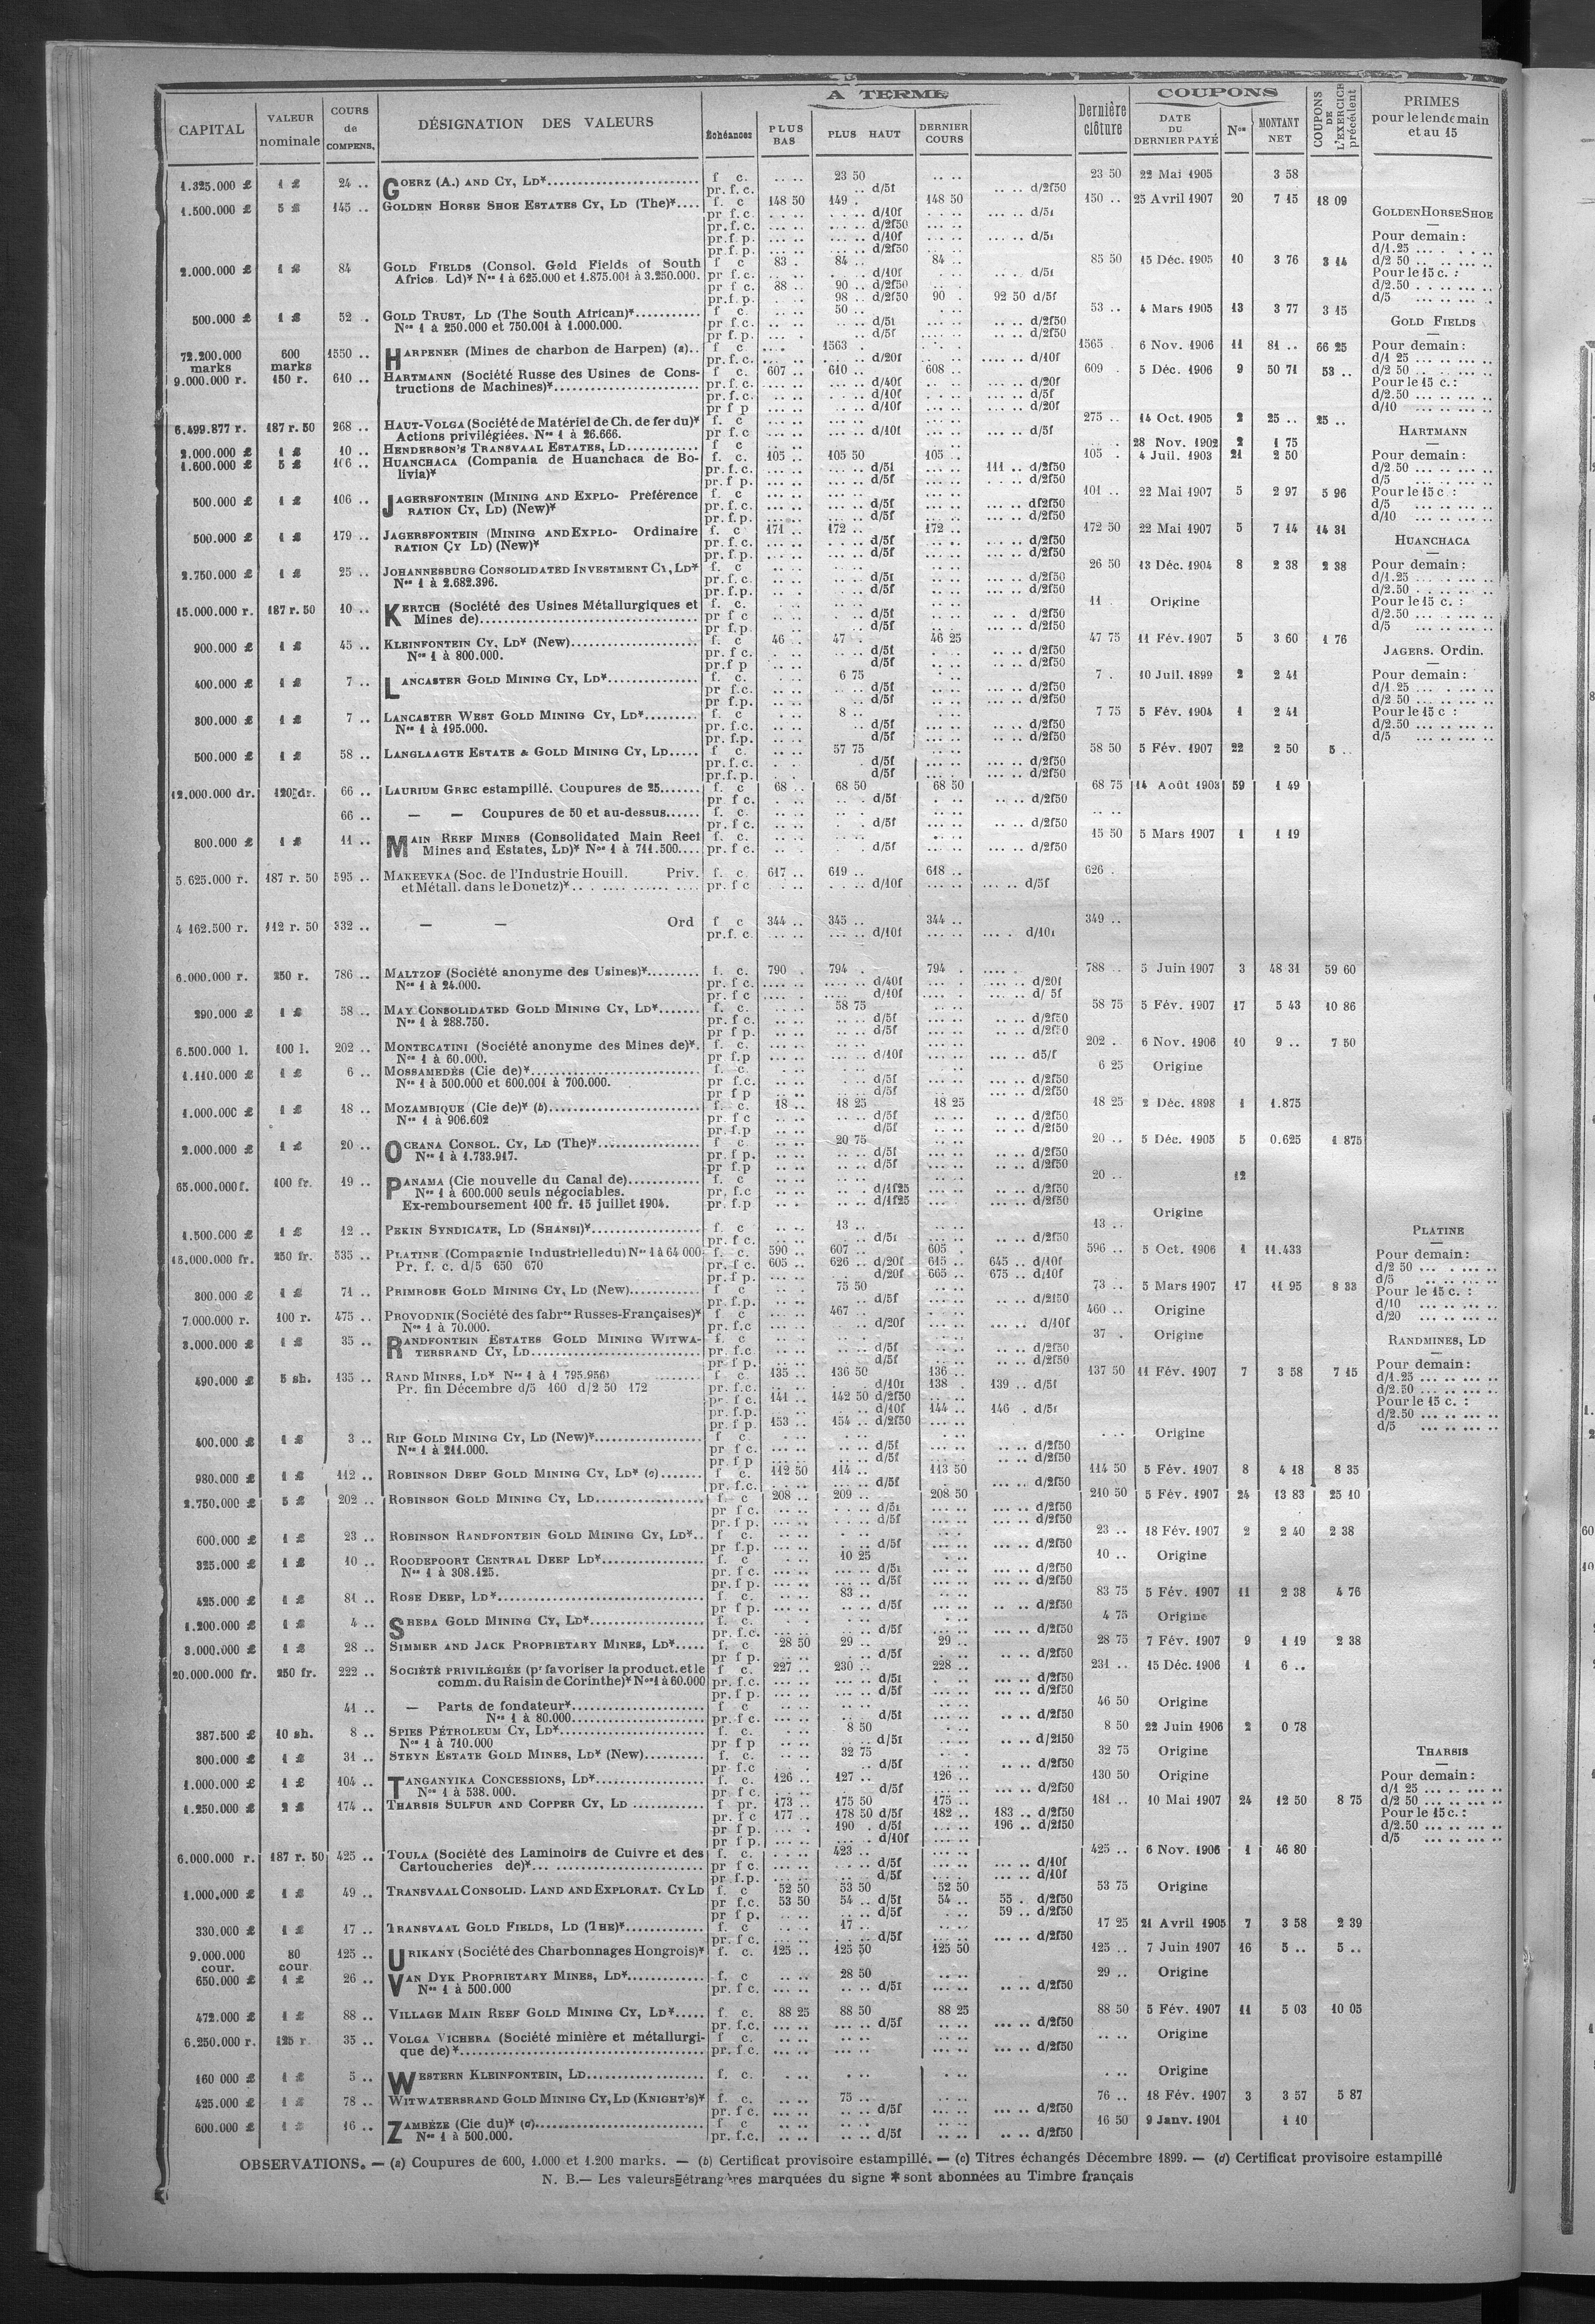 A TERME
COUPONS
CAPITAL
VALEUR nominale
COURS de COMPENS.
DÉSIGNATION DES VALEURS
Échéances
PLUS BAS
PLUS HAUT
DERNIER COURS
Dernière clôture
DATE DU DERNIER PAYÉ
Nos
MONTANT NET
COUPONS DE L'EXERCICE précédent
PRIMES pour le lendemain et au 15
1.325.000 £ 1 £ 24 .. GOERZ (A.) AND CY, LD* f c. 23 50 23 50 22 Mai 1905 3 58
pr. f.c. d/5f d/2f50
1.500.000 £ 5 £ 145 .. GOLDEN HORSE SHOE ESTATES CY, LD (The)* f. c 148 50 149 . 148 50 150 .. 25 Avril 1907 20 7 15 18 09
2.000.000 £ 1 £ 84 GOLD FIELDS (Consol. Gold Fields of South f c 83 . 84 .. 84 .. 85 50 15 Déc. 1905 10 3 76 3 14
Africa Ld)* Nos 1 à 625.000 et 1.875.001 à 3.250.000.
pr f c. 88 .. 90 .. d/2f50
pr.f.p. 98 .. d/2f50 90 . 92 50 d/5f
500.000 £ 1 £ 52 . GOLD TRUST, LD (The South African)* f c. 50 .. 53 .. 4 Mars 1905 13 3 77 3 15
Nos 1 à 250.000 et 750.001 à 1.000.000.
72.200.000 marks 600 marks 1550 .. HARPENER (Mines de charbon de Harpen) (a).. f c 1563 . 1565 . 6 Nov. 1906 11 81 .. 66 25
9.000.000 r. 150 r. 610 .. HARTMANN (Société Russe des Usines de Constructions de Machines)* f c. 607 .. 610 .. 608 .. 609 . 5 Déc. 1906 9 50 71 53 ..
6.499.877 r. 187 r. 50 268 .. HAUT-VOLGA (Société de Matériel de Ch. de fer du)* f. c 275 .. 14 Oct. 1905 2 25 .. 25 ..
Actions privilégiées. Nos 1 à 26.666.
2.000.000 £ 1 £ 10 .. HENDERSON'S TRANSVAAL ESTATES, LD f c 28 Nov. 1902 2 1 75
1.600.000 £ 5 £ 106 .. HUANCHACA (Compania de Huanchaca de Bolivia)* f. c. 105 .. 105 50 105 .. 105 . 4 Juil. 1903 21 2 50
pr.f.c. d/5f 111 .. d/2f50
500.000 £ 1 £ 106 .. JAGERSFONTEIN (MINING AND EXPLORATION CY, LD) (New)* Préférence f. c 101 .. 22 Mai 1907 5 2 97 5 96
500.000 £ 1 £ 179 .. JAGERSFONTEIN (MINING AND EXPLORATION CY LD) (New)* Ordinaire f. c 171 .. 172 .. 172 .. 172 50 22 Mai 1907 5 7 14 14 31
2.750.000 £ 1 £ 25 .. JOHANNESBURG CONSOLIDATED INVESTMENT CY, LD* f. c 26 50 13 Déc. 1904 8 2 38 2 38
Nos 1 à 2.682.396.
15.000.000 r. 187 r. 50 10 .. KERTCH (Société des Usines Métallurgiques et Mines de) f. c. 11 . Origine
900.000 £ 1 £ 45 .. KLEINFONTEIN CY, LD* (New) f. c 46 . 47 . 46 25 47 75 11 Fév. 1907 5 3 60 1 76
Nos 1 à 800.000.
400.000 £ 1 £ 7 .. LANCASTER GOLD MINING CY, LD* f. c. 6 75 7 . 10 Juil. 1899 2 2 41
300.000 £ 1 £ 7 .. LANCASTER WEST GOLD MINING CY, LD* f. c 8 .. 7 75 5 Fév. 1904 1 2 41
Nos 1 à 195.000.
500.000 £ 1 £ 58 .. LANGLAAGTE ESTATE & GOLD MINING CY, LD f c. 57 75 58 50 5 Fév. 1907 22 2 50 5 ..
12.000.000 dr. 120 dr. 66 .. LAURIUM GREC estampillé. Coupures de 25 f. c 68 .. 68 50 68 50 68 75 14 Août 1903 59 1 49
66 .. — — Coupures de 50 et au-dessus f. c.
800.000 £ 1 £ 11 .. MAIN REEF MINES (Consolidated Main Reef Mines and Estates, LD)* Nos 1 à 711.500 f. c. 15 50 5 Mars 1907 1 1 19
5.625.000 r. 187 r. 50 595 .. MAKEEVKA (Soc. de l'Industrie Houill. et Métall. dans le Donetz)* Priv. f. c. 617 .. 619 .. 618 .. 626 .
4 162.500 r. 112 r. 50 332 .. — — Ord f c 344 .. 345 .. 344 .. 349 ..
6.000.000 r. 250 r. 786 .. MALTZOF (Société anonyme des Usines)* f. c. 790 . 794 . 794 . 788 .. 5 Juin 1907 3 48 31 59 60
Nos 1 à 24.000.
290.000 £ 1 £ 58 .. MAY CONSOLIDATED GOLD MINING CY, LD* f. c. 58 75 58 75 5 Fév. 1907 17 5 43 10 86
Nos 1 à 288.750.
6.500.000 l. 100 l. 202 .. MONTECATINI (Société anonyme des Mines de)*. f. c. 202 .. 6 Nov. 1906 10 9 .. 7 50
Nos 1 à 60.000.
1.110.000 £ 1 £ 6 .. MOSSAMEDÈS (Cie de)* f. c. 6 25 Origine
Nos 1 à 500.000 et 600.001 à 700.000.
1.000.000 £ 1 £ 18 .. MOZAMBIQUE (Cie de)* (b) f. c. 18 .. 18 25 18 25 18 25 2 Déc. 1898 1 1.875
Nos 1 à 906.602
2.000.000 £ 1 £ 20 .. OCEANA CONSOL. CY, LD (The)* f c 20 75 20 .. 5 Déc. 1905 5 0.625 1 875
Nos 1 à 1.733.917.
65.000.000 f. 100 fr. 19 .. PANAMA (Cie nouvelle du Canal de) f. c 20 .. 12
Nos 1 à 600.000 seuls négociables.
Ex-remboursement 100 fr. 15 juillet 1904.
Origine
1.500.000 £ 1 £ 12 .. PEKIN SYNDICATE, LD (SHANSI)* f. c 13 .. 13 ..
15.000.000 fr. 250 fr. 535 .. PLATINE (Compagnie Industrielle du) Nos 1 à 64 000 f. c. 590 .. 607 .. 605 . 596 .. 5 Oct. 1906 1 11.433
Pr. f. c. d/5 650 670 pr. f c. 605 .. 626 .. d/20f 615 .. 645 .. d/10f
pr. f p. d/20f 665 .. 675 .. d/10f
300.000 £ 1 £ 71 .. PRIMROSE GOLD MINING CY, LD (New) f c 75 50 73 .. 5 Mars 1907 17 11 95 8 33
7.000.000 r. 100 r. 475 .. PROVODNIK (Société des fabres Russes-Françaises)* f c 467 .. 460 .. Origine
Nos 1 à 70.000.
3.000.000 £ 1 £ 35 .. RANDFONTEIN ESTATES GOLD MINING WITWATERSRAND CY, LD f. c 37 . Origine
490.000 £ 5 sh. 135 .. RAND MINES, LD* Nos 1 à 1 795.956) f c. 135 .. 136 50 136 .. 137 50 11 Fév. 1907 7 3 58 7 15
Pr. fin Décembre d/5 160 d/2 50 172 pr. f.c. d/10f 138 .. 139 .. d/5f
pr. f c. 141 .. 142 50 d/2f50
pr. f.p. d/10f 144 .. 146 . d/5f
pr. f p. 153 .. 154 .. d/2f50
400.000 £ 1 £ 3 .. RIP GOLD MINING CY, LD (New)* f c Origine
Nos 1 à 211.000.
980.000 £ 1 £ 112 .. ROBINSON DEEP GOLD MINING CY, LD* (c) f c. 112 50 114 .. 113 50 114 50 5 Fév. 1907 8 4 18 8 35
2.750.000 £ 5 £ 202 .. ROBINSON GOLD MINING CY, LD f c 208 .. 209 .. 208 50 210 50 5 Fév. 1907 24 13 83 25 10
600.000 £ 1 £ 23 .. ROBINSON RANDFONTEIN GOLD MINING CY, LD* f c. 23 .. 18 Fév. 1907 2 2 40 2 38
325.000 £ 1 £ 10 .. ROODEPOORT CENTRAL DEEP LD* f. c 10 25 10 .. Origine
Nos 1 à 308.125.
425.000 £ 1 £ 81 .. ROSE DEEP, LD* f. c. 83 .. 83 75 5 Fév. 1907 11 2 38 4 76
1.200.000 £ 1 £ 4 .. SHEBA GOLD MINING CY, LD* f. c. 4 75 Origine
3.000.000 £ 1 £ 28 .. SIMMER AND JACK PROPRIETARY MINES, LD* f. c 28 50 29 .. 29 .. 28 75 7 Fév. 1907 9 1 19 2 38
20.000.000 fr. 250 fr. 222 .. SOCIÉTÉ PRIVILÉGIÉE (pr favoriser la product. et le f c. 227 .. 230 .. 228 .. 231 .. 15 Déc. 1906 1 6 ..
comm. du Raisin de Corinthe)* Nos 1 à 60.000
41 .. — Parts de fondateur* f c 46 50 Origine
Nos 1 à 80.000
387.500 £ 10 sh. 8 .. SPIES PÉTROLEUM CY, LD* f. c. 8 50 8 50 22 Juin 1906 2 0 78
Nos 1 à 710.000
300.000 £ 1 £ 31 .. STEYN ESTATE GOLD MINES, LD* (New) f. c. 32 75 32 75 Origine
1.000.000 £ 1 £ 104 .. TANGANYIKA CONCESSIONS, LD* f. c. 126 .. 127 .. 126 .. 130 50 Origine
Nos 1 à 538.000.
1.250.000 £ 2 £ 174 .. THARSIS SULFUR AND COPPER CY, LD f pr. 173 .. 175 50 175 .. 181 .. 10 Mai 1907 24 12 50 8 75
pr. f c 177 .. 178 50 d/5f 182 .. 183 .. d/2f50
pr f p. 190 . d/5f 196 .. d/2f50
6.000.000 r. 187 r. 50 425 .. TOULA (Société des Laminoirs de Cuivre et des Cartoucheries de)* f. c. 423 .. 425 .. 6 Nov. 1906 1 46 80
1.000.000 £ 1 £ 49 .. TRANSVAAL CONSOLID. LAND AND EXPLORAT. CY LD f. c 52 50 53 50 52 50 53 75 Origine
pr f.c. 53 50 54 .. d/5f 54 .. 55 . d/2f50
pr f p. d/5f 59 .. d/2f50
330.000 £ 1 £ 17 .. TRANSVAAL GOLD FIELDS, LD (THE)* f. c 17 .. 17 25 21 Avril 1905 7 3 58 2 39
9.000.000 cour. 80 cour 125 .. URIKANY (Société des Charbonnages Hongrois)* f. c. 125 .. 125 50 125 50 125 .. 7 Juin 1907 16 5 .. 5 ..
650.000 £ 1 £ 26 .. VAN DYK PROPRIETARY MINES, LD* f. c 28 50 29 .. Origine
Nos 1 à 500.000
472.000 £ 1 £ 88 .. VILLAGE MAIN REEF GOLD MINING CY, LD* f. c. 88 25 88 50 88 25 88 50 5 Fév. 1907 11 5 03 10 05
6.250.000 r. 125 r 35 .. VOLGA VICHERA (Société minière et métallurgique de)* f c. Origine
160 000 £ 1 £ 5 .. WESTERN KLEINFONTEIN, LD f. c. Origine
425.000 £ 1 £ 78 .. WITWATERSRAND GOLD MINING CY, LD (KNIGHT'S)* f. c. 75 .. 76 .. 18 Fév. 1907 3 3 57 5 87
600.000 £ 1 £ 16 .. ZAMBÈZE (Cie du)* (d) f c 16 50 9 Janv. 1901 1 10
Nos 1 à 500.000.
GOLDEN HORSE SHOE
Pour demain :
d/1.25
d/2 50
Pour le 15 c. :
d/2.50
d/5
GOLD FIELDS
Pour demain :
d/1 25
d/2 50
Pour le 15 c. :
d/2.50
d/10
HARTMANN
Pour demain :
d/2.50
d/5
Pour le 15 c. :
d/5
d/10
HUANCHACA
Pour demain :
d/1.25
d/2.50
Pour le 15 c. :
d/2.50
d/5
JAGERS. Ordin.
Pour demain :
d/1.25
d/2 50
Pour le 15 c :
d/2.50
d/5
PLATINE
Pour demain :
d/2 50
d/5
Pour le 15 c. :
d/10
d/20
RANDMINES, LD
Pour demain :
d/1.25
d/2.50
Pour le 15 c. :
d/2.50
d/5
THARSIS
Pour demain :
d/1 25
d/2 50
Pour le 15 c. :
d/2.50
d/5
OBSERVATIONS. — (a) Coupures de 600, 1.000 et 1.200 marks. — (b) Certificat provisoire estampillé. — (c) Titres échangés Décembre 1899. — (d) Certificat provisoire estampillé
N. B. — Les valeurs étrangères marquées du signe * sont abonnées au Timbre français